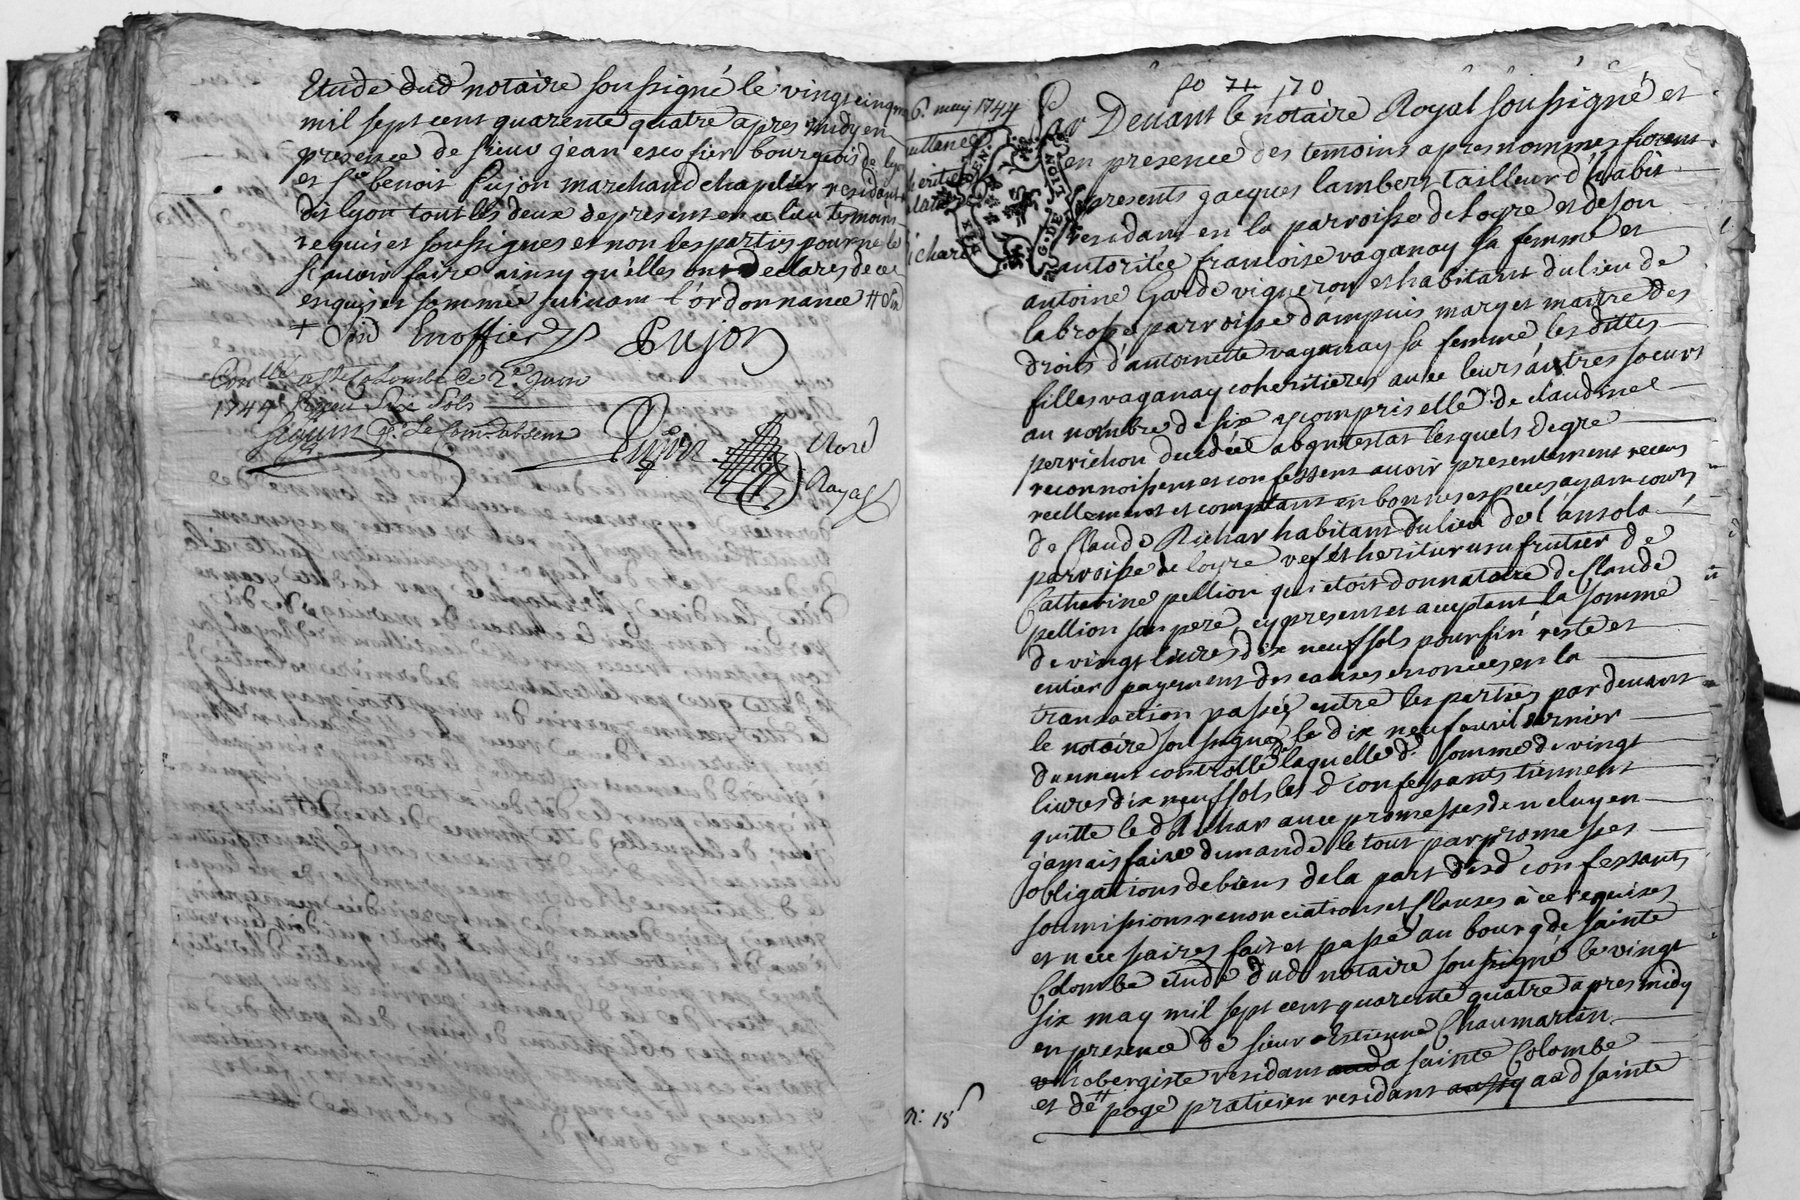 Etude dud notaire soussigné le vingt cinq may
mil sept cent quarente quatre apres midy en
presence de sieur jean escofier bourgeois de lyon
et Sr benoit Pujon marchand chapelier residants
dit lyon tout les deux depresent en ce lieu temoins
requis et soussignes et non les parties pour ne le
scavoir faire ainsy qu'elles ont declares de ce
enquis et sommée suivant l'ordonnance
Pujon
Conllé a Ste Colombe ce 2e Juin
1744 Reçeu six sols
pr le Com. absent
Pujon
Nore
Royal
fo 71 70
6. may 1744
quittance
ichard
Par Devant le notaire Royal soussigné et
en presence des temoins apres nommes furent
presents jacques lambert tailleur d'habit
residant en la parroisse de loyre et de son
autoritée francoise vaganay sa femme et
antoine Garde vigneron et habitant du lieu de
la brosse parroisse d'ampuis mary et maitre des
droits d'antoinette vaganay sa femme les dittes
filles vaganay coheritieres avec leurs autres soeurs
au nombre de six y compris elle de claudine
perrichon decedée abintestat lesquels de gre
reconnoissent et confessent avoir presentement receus
reellement et comptant en bonnes especes ayant cours
de Claude Richar habitant du lieu de
parroisse de loyre vef et heritier usufrutier de
Catherine pellion qui etoit donnataire de Claude
pellion son pere, cy present et acceptant la somme
de vingt livres dix neuf sols pour fin reste et
entier payement des causes enoncees en la
transaction passée entre les parties par devant
le notaire soussigné le dix neuf avril dernier
duement controllé de laquelle de somme de vingt
livres dix neuf sols les d confessants tiennent
quitte le d Richar avec promesses de n eluy en
jamais faire demande le tout par promesses
obligations de biens de la part desd confessants
soumissions renonciations et Clauses à ce requises
et necessaires fait et passé au bourg de sainte
Colombe etude dud notaire soussigné le vingt
six may mil sept cent quarente quatre apres midy
en presence de sieur estienne Chaumartin
hobergiste residant a sainte Colombe
et de poge praticien residant aud sainte
n: 18